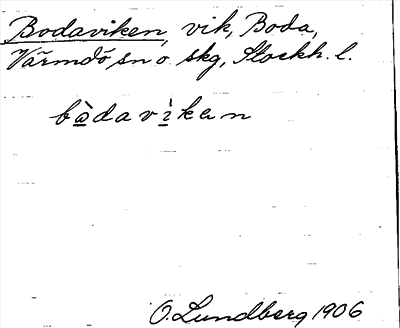 Bodaviken, vik, Boda,
Värmdö sn o. skg, Stockh. l.
bàdavìken
O. Lundberg 1906